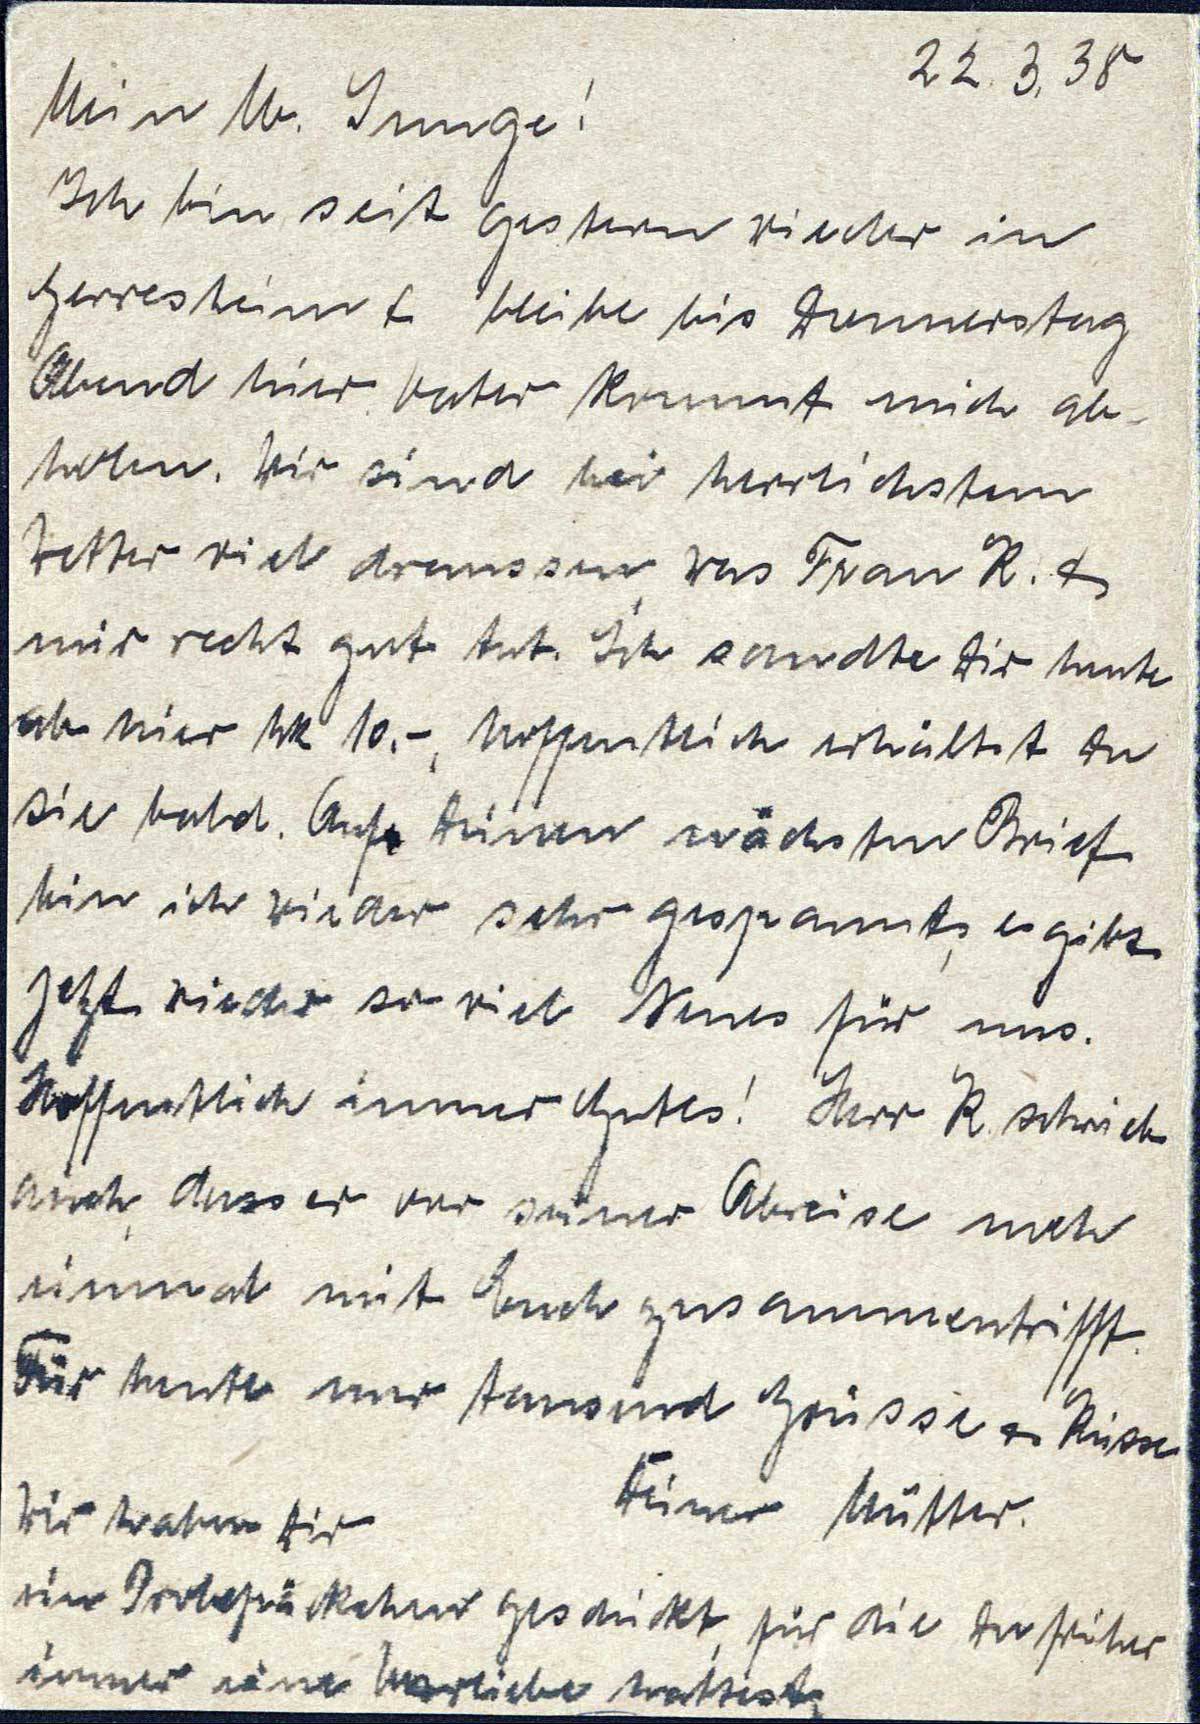 22.3.38
Mein lb. Junge!
Ich bin seit gestern wieder in
Gerresheim & bleibe bis Donnerstag
Abend hier. Vater kommt mich ab-
holen. Wir sind bei herrlichstem
Wetter viel draussen, was Frau R. &
mir recht gut tut. Ich sandte Dir heute
ab hier Mk 10.-, hoffentlich erhältst Du
sie bald. Auf Deinen nächsten Brief
bin ich wieder sehr gespannt, es gibt
jetzt wieder so viel Neues für uns.
Hoffentlich immer Gutes! Herr R. schrieb
auch, dass er vor seiner Abreise noch
einmal mit Euch zusammentrifft.
Für heute nur tausend Grüsse & Küsse
Deiner Mutter.
Wir haben Dir
ein Probepäckchen geschickt, für die Du früher
immer eine Vorliebe hattest,